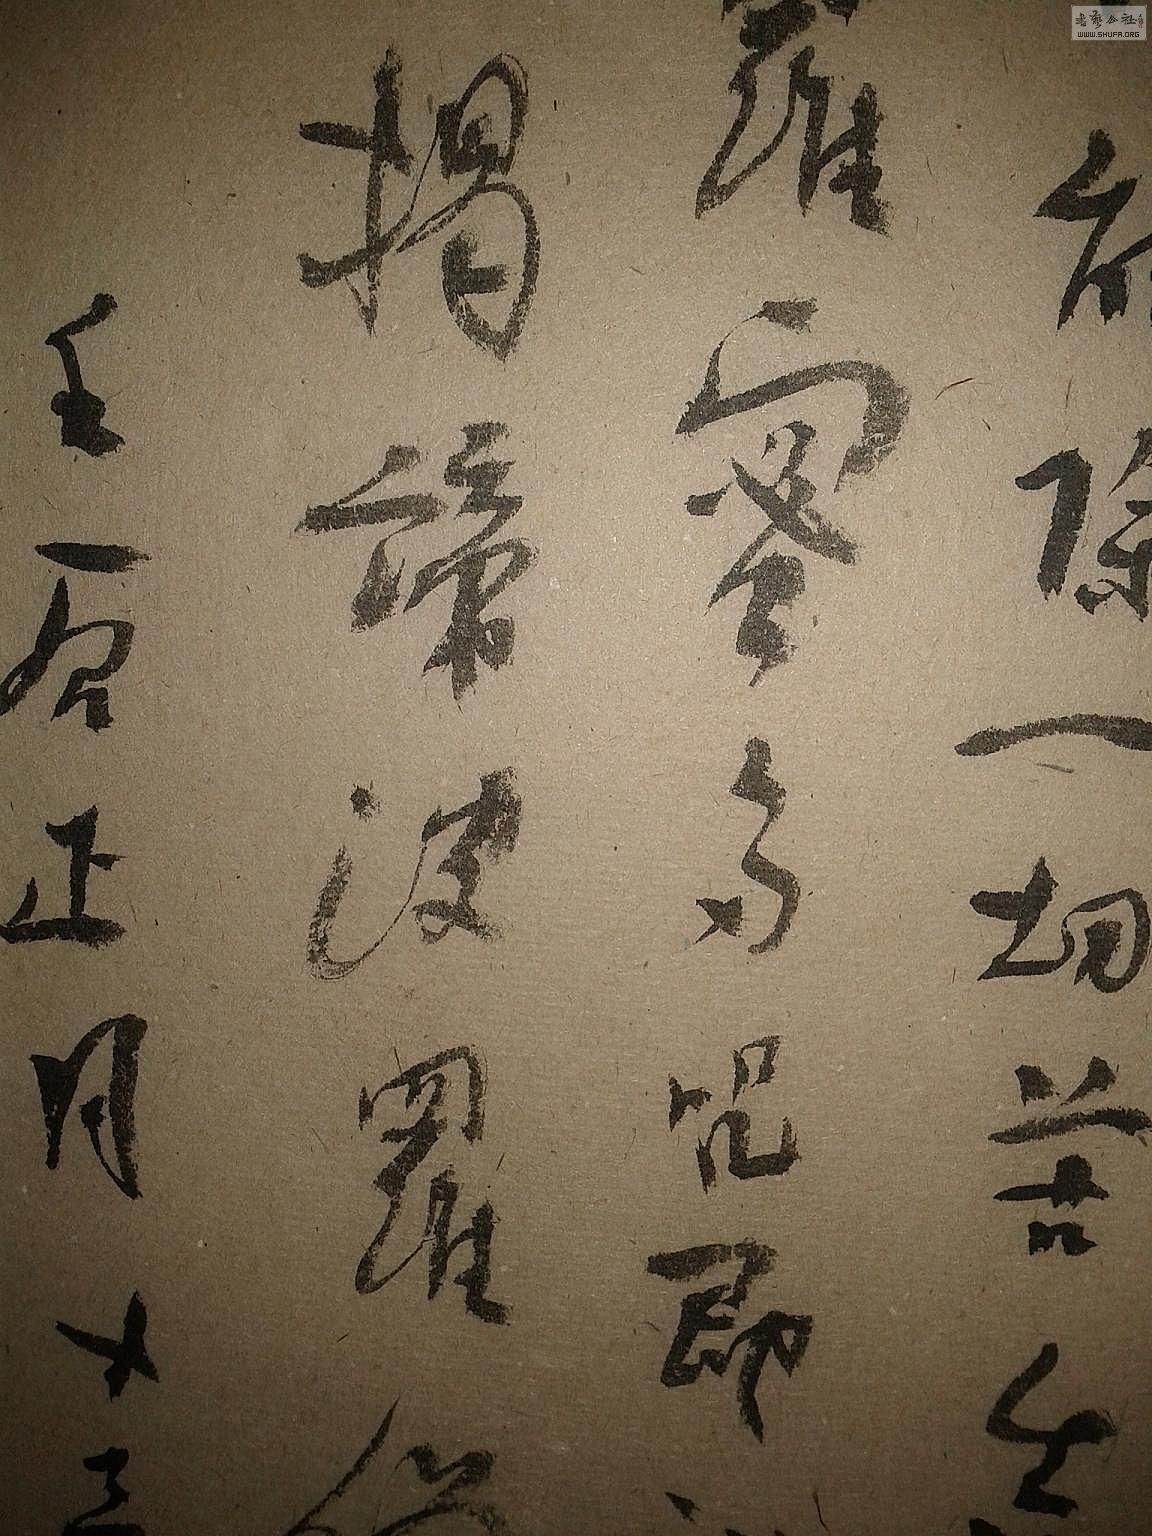 能除一切苦真
羅蜜多咒即
揭諦波羅僧
壬辰正月十三
書藝公社
WWW.SHUFA.ORG